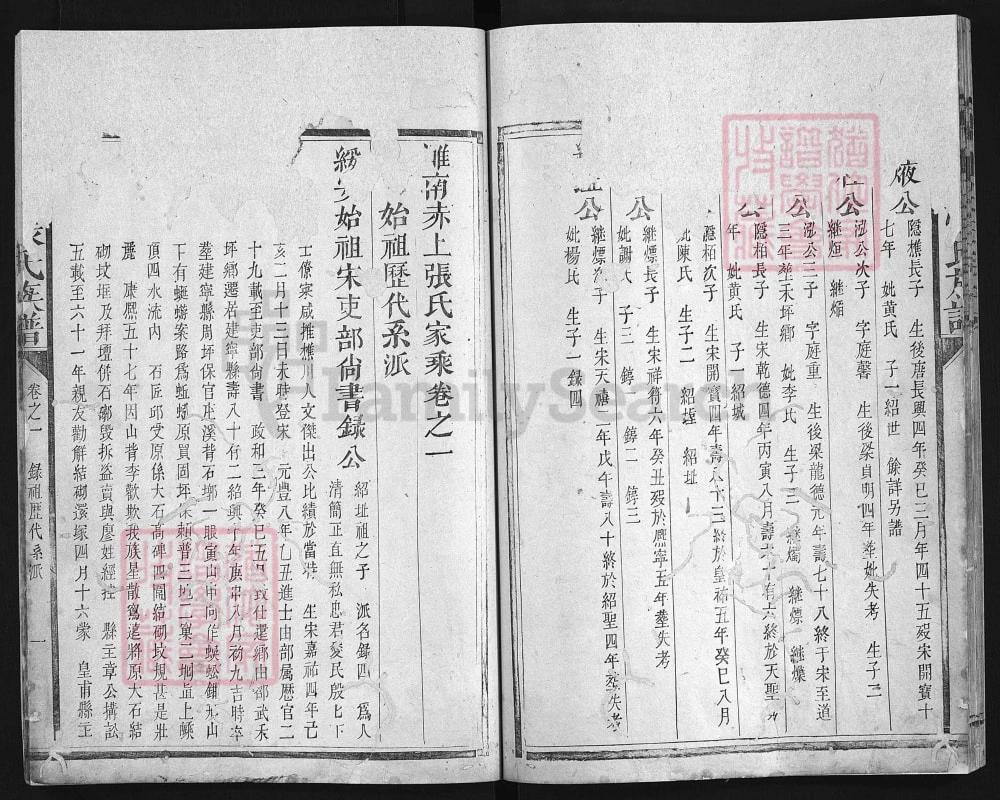 公
隱樵長子 生後唐長興四年癸巳三月年四十五歿宋開寶十
七年 妣黃氏 子一紹世 餘詳另譜
公
泓公次子 字庭馨 生後梁貞明四年 葬妣失考 生子二
繼烜 繼燔
公
泓公三子 字庭重 生後梁龍德元年壽七十八終于宋至道
三年葬禾坪鄉 妣李氏 生子三 繼燭 繼熛 繼爍
公
隱柏長子 生宋乾德四年丙寅八月壽 十有六終於天聖
年 妣黃氏 子一紹城
隱栢次子 生宋開寶四年壽 十三終於皇祐五年癸巳八月
妣陳氏 生子二 紹 紹址
公
繼熛長子 生宋祥符六年癸丑歿於熈寧五年葬失考
妣謝氏 子三 錞一 錞二 錞三
公
繼熛次子 生宋天禧二年戊午壽八十終於紹聖四年葬失考
妣楊氏 生子一錄四
張氏族譜
南赤上張氏家乘卷之一
始祖歷代系派
始祖宋吏部尙書錄公
紹址祖之子 派名錄四 爲人
清簡正直無私忠君愛民殷七下
士僚寀咸推樵川人文傑出公比績於當時 生宋嘉祐四年己
亥二月十三日未時登宋 元豐八年乙丑進士由部屬歷官二
十九載至吏部尙書 政和三年癸巳五 致仕還鄉由邵武禾
坪鄉遷居建寧縣壽八十有二紹興 年庚申八月初九吉時卒
葬建寧縣周坪保官庄溪背石塅一眼寅山申向作蜈蚣鉗形山
下有蜒蝣案路爲蚯蟮原買固坪保賴普三地二菓二垇直上崠
頂四水流內 石匠邱受原係大石高碑四圍結砌坟規甚是壯
麗 康熈五十七年因山背李歡欺我族星散寫遠將原大石結
砌坟堆及拜壇併石塅毀拆盜賣與廖姓經控 縣主章公搆訟
五載至六十一年親友勸解結砌還塚四月十六蒙 皇甫縣主
氏族譜 卷之一 錄祖歷代系派 一
FamilySearch